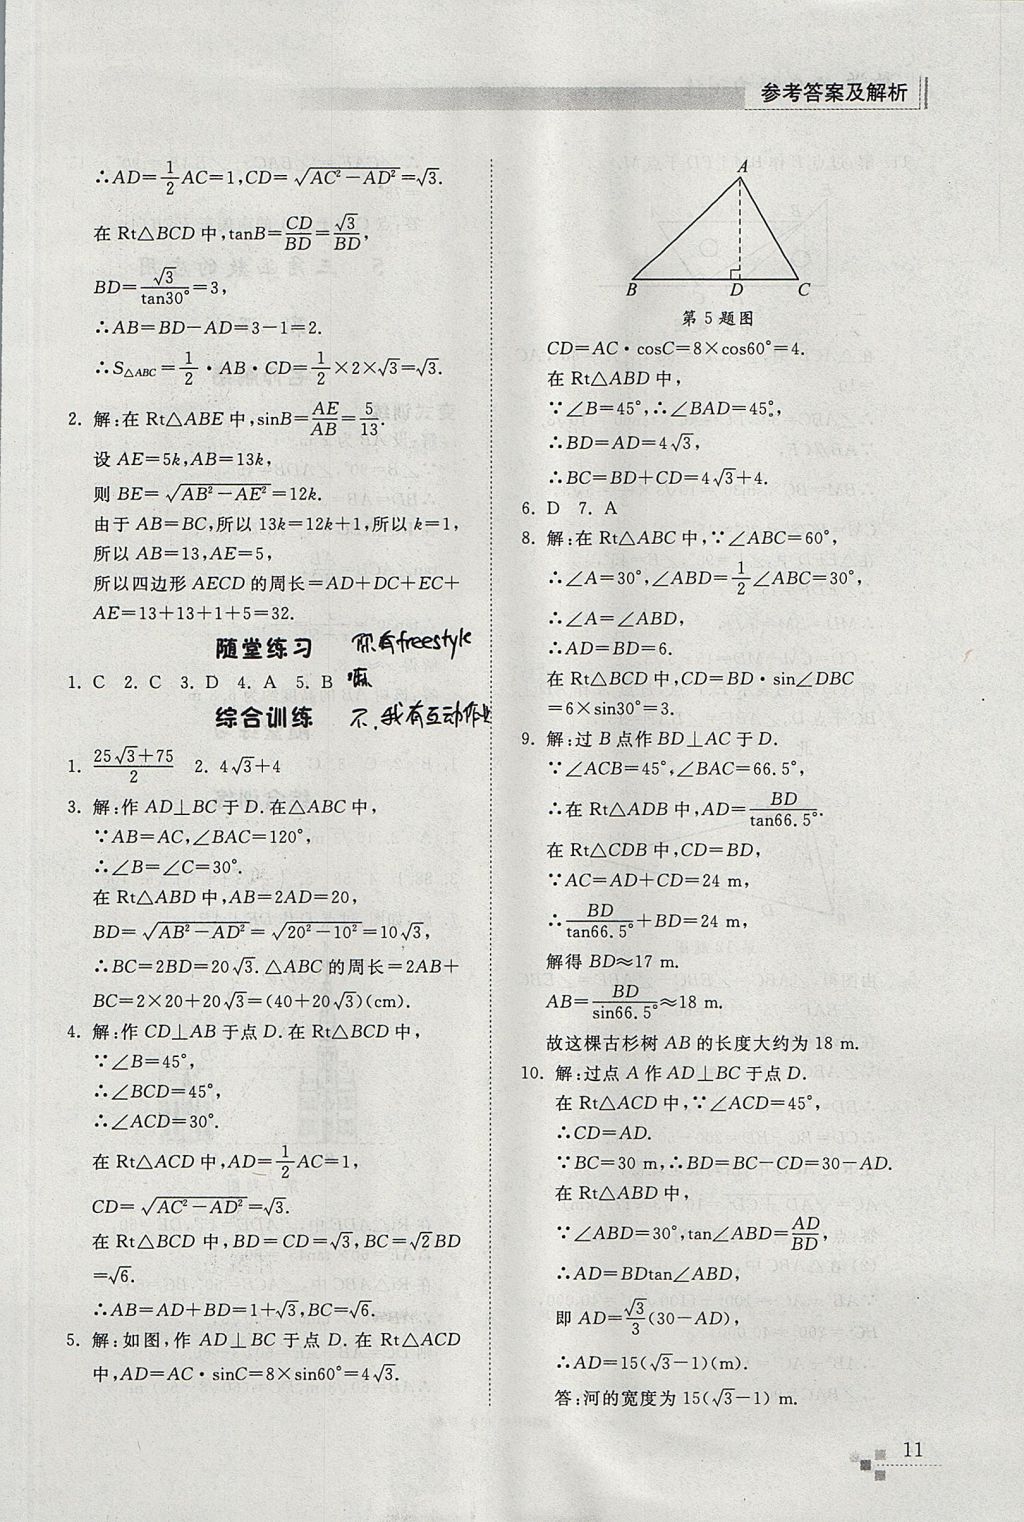 参考答案及解析
∴AD=1/2 AC=1,CD=√(AC²-AD²)=√3.
在 Rt△BCD 中,tanB=CD/BD=√3/BD,
BD=√3/tan30°=3,
∴AB=BD-AD=3-1=2.
∴S△ABC=1/2·AB·CD=1/2×2×√3=√3.
2. 解:在 Rt△ABE 中,sinB=AE/AB=5/13.
设 AE=5k,AB=13k,
则 BE=√(AB²-AE²)=12k.
由于 AB=BC,所以 13k=12k+1,所以 k=1,
所以 AB=13,AE=5,
所以四边形 AECD 的周长=AD+DC+EC+
AE=13+13+1+5=32.
随堂练习 你有freestyle
1. C 2. C 3. D 4. A 5. B 嘛
综合训练 不,我有互动作业
1. (25√3+75)/2 2. 4√3+4
3. 解:作 AD⊥BC 于 D. 在△ABC 中,
∵AB=AC,∠BAC=120°,
∴∠B=∠C=30°.
在 Rt△ABD 中,AB=2AD=20,
BD=√(AB²-AD²)=√(20²-10²)=10√3,
∴BC=2BD=20√3. △ABC 的周长=2AB+
BC=2×20+20√3=(40+20√3)(cm).
4. 解:作 CD⊥AB 于点 D. 在 Rt△BCD 中,
∵∠B=45°,
∴∠BCD=45°,
∴∠ACD=30°.
在 Rt△ACD 中,AD=1/2 AC=1,
CD=√(AC²-AD²)=√3.
在 Rt△BCD 中,BD=CD=√3,BC=√2BD
=√6.
∴AB=AD+BD=1+√3,BC=√6.
5. 解:如图,作 AD⊥BC 于点 D. 在 Rt△ACD
中,AD=AC·sinC=8×sin60°=4√3.
A
B D C
第 5 题图
CD=AC·cosC=8×cos60°=4.
在 Rt△ABD 中,
∵∠B=45°,∴∠BAD=45°,
∴BD=AD=4√3,
∴BC=BD+CD=4√3+4.
6. D 7. A
8. 解:在 Rt△ABC 中,∵∠ABC=60°,
∴∠A=30°,∠ABD=1/2∠ABC=30°,
∴∠A=∠ABD,
∴AD=BD=6.
在 Rt△BCD 中,CD=BD·sin∠DBC
=6×sin30°=3.
9. 解:过 B 点作 BD⊥AC 于 D.
∵∠ACB=45°,∠BAC=66.5°,
∴在 Rt△ADB 中,AD=BD/tan66.5°.
在 Rt△CDB 中,CD=BD,
∵AC=AD+CD=24 m,
∴BD/tan66.5°+BD=24 m,
解得 BD≈17 m.
AB=BD/sin66.5°≈18 m.
故这棵古杉树 AB 的长度大约为 18 m.
10. 解:过点 A 作 AD⊥BC 于点 D.
在 Rt△ACD 中,∵∠ACD=45°,
∴CD=AD.
∵BC=30 m,∴BD=BC-CD=30-AD.
在 Rt△ABD 中,
∵∠ABD=30°,tan∠ABD=AD/BD,
∴AD=BDtan∠ABD,
即 AD=√3/3(30-AD),
∴AD=15(√3-1)(m).
答:河的宽度为 15(√3-1) m.
11